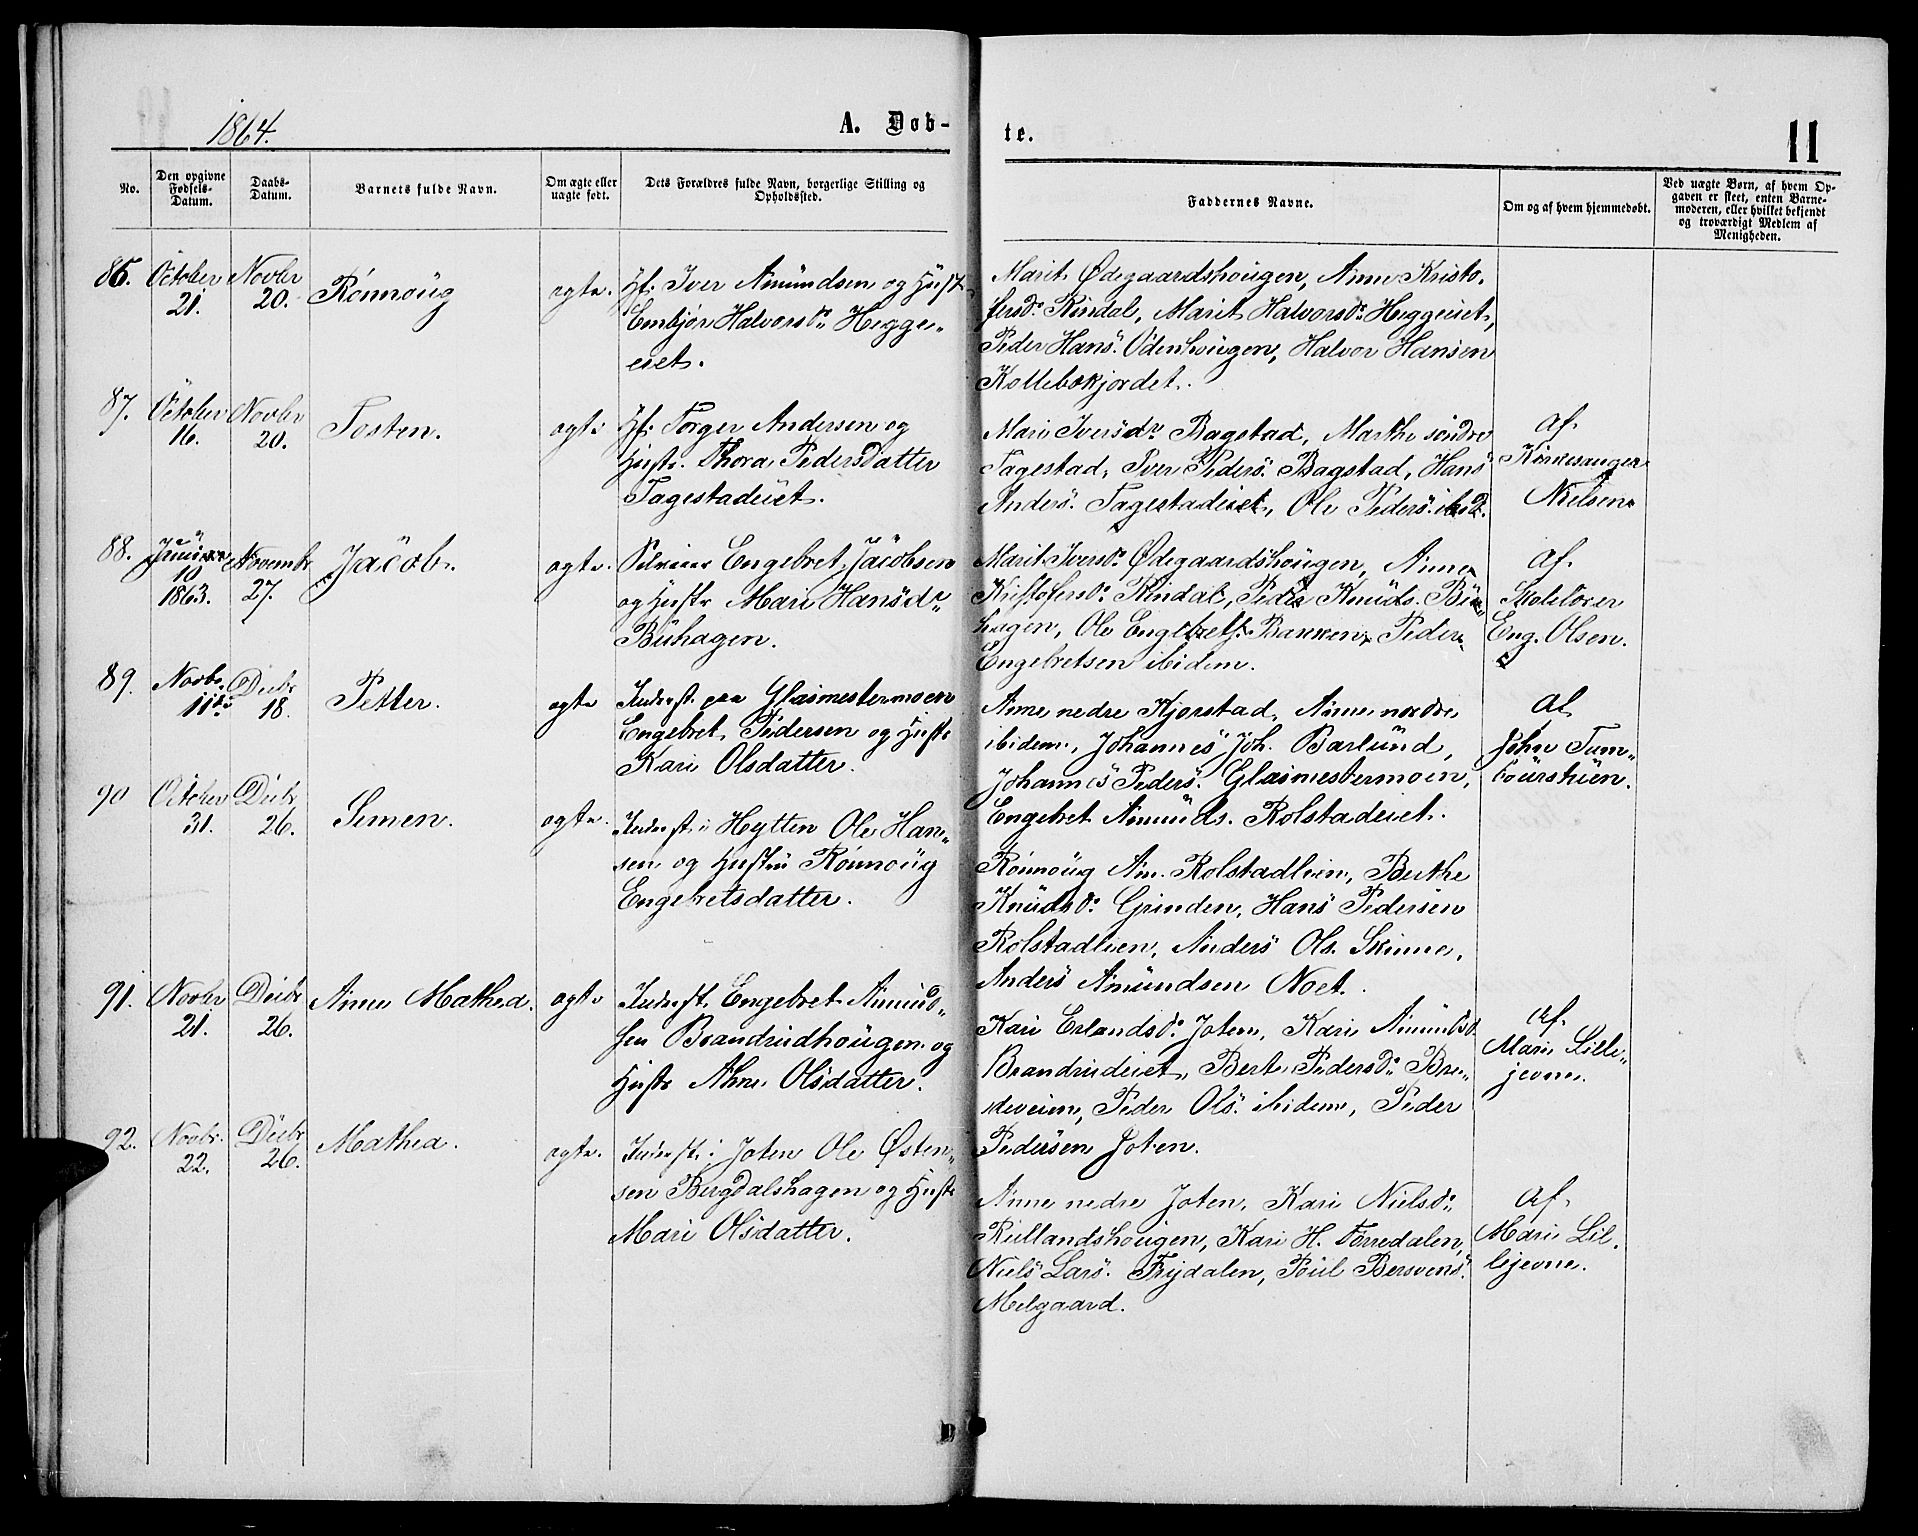 1864.
A. Døb-
te.
11
No.
Den opgivne
Fødsels-
Datum.
Daabs-
Datum.
Barnets fulde Navn.
Om ægte eller
uagte født.
Dets Forældres fulde Navn, borgerlige Stilling og
Opholdssted.
Faddernes Navne.
Om og af hvem hjemmedøbt.
Ved uægte Børn, af hvem Op-
gaven er skeet, enten Barne-
moderen, eller hvilket bekjendt
og troværdigt Medlem af
Menigheden.
86.
October
21.
Novbr
20.
Rønnoug
ægte.
Hf. Iver Amundsen og Hustr
Embjør Halvorsdr Hegge-
eiet.
Marit Ødegaardshougen, Anne Kristo-
fersdr Rindal, Marit Halvorsdr Heggeeiet,
Peder Hans. Odenhougen, Halvor Hansen
Kollebækjordet.
87.
October
16.
Novbr
20.
Tosten.
ægte
Hf. Torger Andersen og
Hustr. Thora Pedersdatter
Tagestadeiet.
Mari Iversdr Bagstad, Marthe søndre
Tagestad, Iver Peders. Bagstad, Hans
Anders. Tagestadeiet, Ole Peders. ibid.
af
Kirkesanger
Nielsen
88.
10
1863.
Novembr
27.
Jacob.
ægte.
Engebret Jacobsen
og Hustr Mari Hansdr
Buhagen.
Marit Iversdr Ødegaardshougen, Anne
Kristofersdr Rindal, Peder Knuds. Bu-
hagen, Ole Engebrets. Bakken, Peder
Engebretsen ibidem.
af
Skolelærer
Eng. Olsen.
89.
Novbr.
11te
Decbr
18.
Petter.
ægte
Inderst paa Glasmestermoen
Engebret Pedersen og Hustr
Kari Olsdatter.
Anne nedre Kjorstad, Anne nordre
ibidem, Johannes Joh. Barlund,
Johannes Peders. Glasmestermoen,
Engebret Amunds. Rolstadeiet.
af
John Tum-
90
October
31.
Decbr
26.
Simen.
ægte.
Inderst i Hytten Ole Han-
sen og Hustru Rønnoug
Engebretsdatter.
Rønnoug Am. Rolstadlien, Berthe
Knudsdr Grinden, Hans Pedersen
Rolstadlien, Anders Ols. Skinne,
Anders Amundsen Noet.
91.
Novbr
21.
Decbr
26.
Anne Mathea.
ægte
Inderst. Engebret Amund-
sen Brandrudhougen og
Hustr Anne Olsdatter.
Kari Erlandsdr Joten, Kari Amundsd.
Brandrudeiet, Berte Pedersdr Bre-
deveien, Peder Ols. ibidem, Peder
Pedersen Joten.
af
Mari Lille-
jevne.
92.
Novbr.
22.
Decbr
26.
Mathea.
ægte.
Inderst i Joten Ole Østen-
sen Bergdalshagen og Hustr
Mari Olsdatter.
Anne nedre Joten, Kari Nielsdr
Rullandshougen, Kari H. Forredalen,
Niels Lars. Frydalen, Poul Bersvens.
Melgaard.
af
Mari Lil-
lejevne.